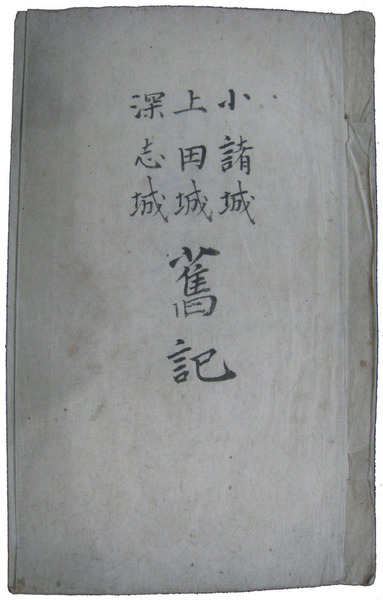 小諸城
上田城
深志城
舊記